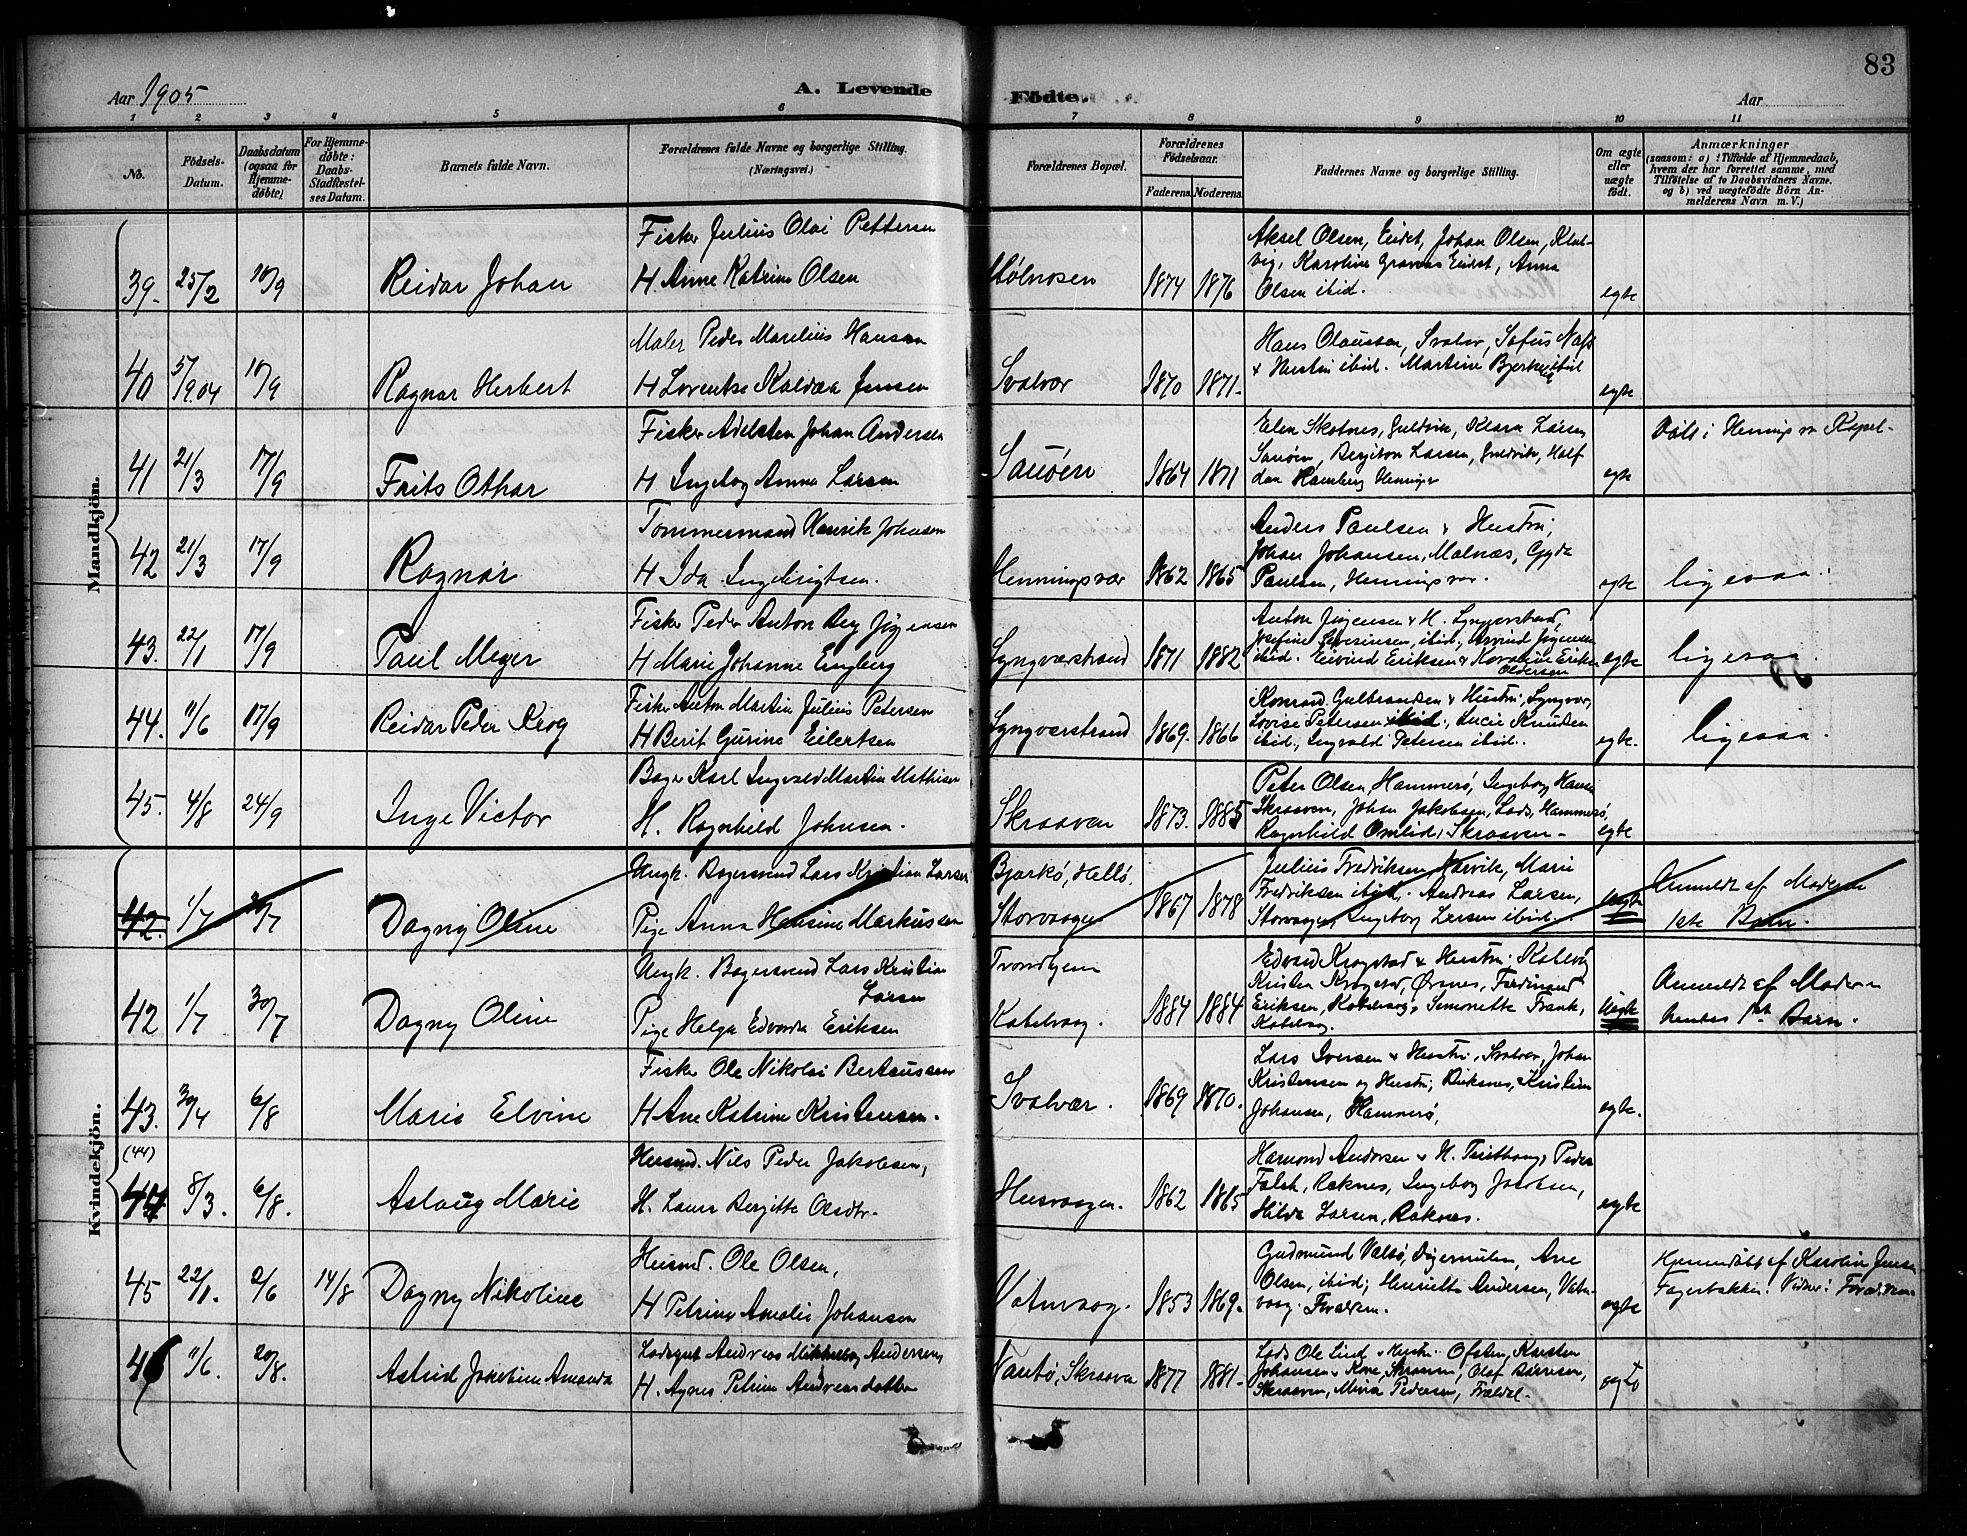 83
Aar 1905
A. Levende
Fødte.
Aar
1 2 3 4 5 6 7 8 9 10 11
No.
Fødsels-
Datum.
Daabsdatum
(ogsaa for
Hjemme-
døbte)
For Hjemme-
døbte:
Daabs-
Stadfæstel-
ses Datum.
Barnets fulde Navn.
Forældrenes fulde Navne og borgerlige Stilling.
(Næringsvei.)
Forældrenes Bopæl.
Forældrenes
Fødselsaar.
Faderens. Moderens.
Faddernes Navne og borgerlige Stilling.
Om ægte
eller
uægte
født.
Anmærkninger
(saasom: a) i Tilfælde af Hjemmedaab,
hvem der har forrettet samme, med
Tilføielse af to Daabsvidners Navne.
og b) ved uægtefødte Børn An-
melderens Navn m. V.)
Mandkjön.
39. 25/2 10/9 Reidar Johan
Fisker Julius Olai Pettersen
H Anne Katrine Olsen
1874 1876
Aksel Olsen, Eidet, Johan Olsen, Klat-
vig, Karoline Eidet, Anna
Olsen ibid.
egte
40 5/9.04 10/9 Ragnar Herbert
Maler Peder Marelius Hansen
H Lorentse Kaldaa Jensen
Svolvær 1870 1871
Hans Olaussen, Svolvr, Sofus
& Hustru ibid. Martine ibid
egte
41 21/3 17/9 Frits Othar
Fisker Adelsten Johan Andersen
H Ingeborg Anna Larsen
Sauøen 1864 1871
Elen Skotnes, Guldvik, Klara Larsen
Sauøen, Larsen, Guldvik, Half
dan Ramberg
egte
Døbt i Kapel-
42 21/3 17/9 Ragnar
Tømmermand Henrik Johnsen
H Ida Ingebrigtsen.
Henningsvær 1862 1865
Anders Paulsen & Hustru,
Johan Johansen, Malnæs, Gyda
Paulsen, Henningsvær.
egte
ligesaa.
43. 22/1 17/9 Paul Meyer
Fisker Peder Anton Jörgensen
H Marie Johanne Engberg
Lyngværstrand 1871 1882
Anton Jörgensen & H. Lyngverstrand,
Josefine Severinsen, ibid, Jörgensen
ibid. Eivind Eriksen & Karoline Eriksen
egte
ligesaa.
44. 11/6 17/9 Reidar Peder Krog
Fisker Anton Martin Julius Petersen
H Berit Gurine Eilertsen
Lyngværstrand 1869. 1866
Konrad Gulbrandsen & Hustru, Lyngvær,
Lovise Petersen ibid., Lucie Knudsen
ibid., Ingvald Petersen ibid.
egte.
ligesaa.
45. 4/8 24/9 Inge Victor
Bager Karl Ingvald Martin Mathisen
H. Ragnhild Johnsen.
Skraaven 1873. 1885
Peter Olsen, Hammerö, Ingeborg
Skraaven, Johan Jakobsen, Lods, Hammerö,
Ragnhild Omlid, Skraaven
egte
Kvindekjön.
42. 1/7 30/7 Dagny Oline
Ungk. Bagersvend Lars Kristian Larsen
Pige Anna Hansine Markussen
Bjarkö,
Storvaagen 1867 1878
Julius Fredriksen Narvik, Marie
Fredriksen ibid. Andreas Larsen,
Storvaagen, Ingeborg Larsen ibid.
uegte
Anmeldt af Moderen
1ste Barn.
42 1/7 30/7 Dagny Oline
Ungk. Bagersvend Lars Kristian
Larsen
Pige Helga Edvarda Eriksen
Trondhjem
Kabelvaag. 1884 1884
Edvard Krogstad & Hustru. Kabelvåg
Kristen Krogstad, Ørsnes, Ferdinand
Eriksen, Kabelvåg, Simonette Frank,
Kabelvåg.
Uegte
Anmeldt af Moderen
hendes 1ste Barn.
43. 30/4 6/8 Marie Elvine
Fisker Ole Nikolai Berteussen
H Ane Katrine Kristensen.
Svolvær. 1869 1870.
Lars Iversen & Hustru, Svolvær, Johan
Kristensen og Hustru, Kristian
Johansen, Hammerö,
egte.
(44)
44 8/3. 6/8. Aslaug Marie
Husmd. Nils Peder Jakobsen,
H. Laura Bergitte Olsdtr.
Husvaagen. 1862 1865
Andersen & H. Peder
Falch, Raknes, Ingeborg Jacobsen,
Hilda Larsen, Raknes.
egte
45 22/1. 2/6 14/8 Dagny Nikoline
Husmd. Ole Olsen,
H Petrine Amalie Johansen
Vatnvaag. 1853 1869.
Gudmund Digermulen, Ane
Olsen, ibid; Henriette Andersen, Vatn-
vaag. Foræld.
egte
Hjemmedöbt af Karolin Jensen
46 11/6. 20/8. Astrid Josefine Amanda
Lodsgut Andreas Andersen,
H. Agnes Petrine Andreasdatter
Skraaven 1877 1881.
Lods Ole Lind & Hustru. Karsten
Johansen & Kone, Skraaven, Olaf
Skraaven, Mina Pedersen,
egte